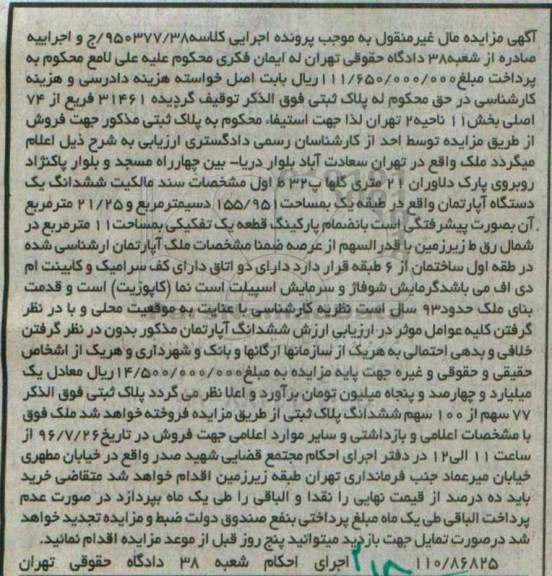 آگهی مزایده مال غیرمنقول به موجب پرونده اجرایی کلاسه۹۵۰۳۷۷/۳۸/ج و اجراییه
صادره از شعبه۳۸ دادگاه حقوقی تهران له ایمان فکری محکوم علیه علی لامع محکوم به
پرداخت مبلغ۱۱۱/۶۵۰/۰۰۰/۰۰۰ریال بابت اصل خواسته هزینه دادرسی و هزینه
کارشناسی در حق محکوم له پلاک ثبتی فوق الذکر توقیف گردیده ۳۱۴۶۱ فریع از ۷۴
اصلی بخش۱۱ ناحیه۲ تهران لذا جهت استیفاء محکوم به پلاک ثبتی مذکور جهت فروش
از طریق مزایده توسط احد از کارشناسان رسمی دادگستری ارزیابی به شرح ذیل اعلام
میگردد ملک واقع در تهران سعادت آباد بلوار دریا- بین چهارراه مسجد و بلوار پاکنژاد
روبروی پارک دلاوران ۲۱ متری گلها پ۳۲ ط اول مشخصات سند مالکیت ششدانگ یک
دستگاه آپارتمان واقع در طبقه یک بمساحت۱۵۵/۹۵۱ دسیمترمربع و ۲۱/۲۵ مترمربع
آن بصورت پیشرفتگی است بانضمام پارکینگ قطعه یک تفکیکی بمساحت۱۱ مترمربع در
شمال رق ط زیرزمین با قدرالسهم از عرصه ضمنا مشخصات ملک آپارتمان ارشناسی شده
در طقه اول ساختمان از ۶ طبقه قرار دارد دارای دو اتاق دارای کف سرامیک و کابینت ام
دی اف می باشدگرمایش شوفاژ و سرمایش اسپیلت است نما (کاپوزیت) است و قدمت
بنای ملک حدود۹۳ سال است نظریه کارشناسی با عنایت به موقعیت محلی و با در نظر
گرفتن کلیه عوامل موثر در ارزیابی ارزش ششدانگ آپارتمان مذکور بدون در نظر گرفتن
خلافی و بدهی احتمالی به هریک از سازمانها ارگانها و بانک و شهرداری و هریک از اشخاص
حقیقی و حقوقی و غیره جهت پایه مزایده به مبلغ۱۴/۵۰۰/۰۰۰/۰۰۰ریال معادل یک
میلیارد و چهارصد و پنجاه میلیون تومان برآورد و اعلا نظر می گردد پلاک ثبتی فوق الذکر
۷۷ سهم از ۱۰۰ سهم ششدانگ پلاک ثبتی از طریق مزایده فروخته خواهد شد ملک فوق
با مشخصات اعلامی و بازداشتی و سایر موارد اعلامی جهت فروش در تاریخ۹۶/۷/۲۶ از
ساعت ۱۱ الی۱۲ در دفتر اجرای احکام مجتمع قضایی شهید صدر واقع در خیابان مطهری
خیابان میرعماد جنب فرمانداری تهران طبقه زیرزمین اقدام خواهد شد متقاضی خرید
باید ده درصد از قیمت نهایی را نقدا و الباقی را طی یک ماه بپردازد در صورت عدم
پرداخت الباقی طی یک ماه مبلغ پرداختی بنفع صندوق دولت ضبط و مزایده تجدید خواهد
شد درصورت تمایل جهت بازدید میتوانید پنج روز قبل از موعد مزایده اقدام نمائید.
۱۱۰/۸۶۸۲۵ اجرای احکام شعبه ۳۸ دادگاه حقوقی تهران